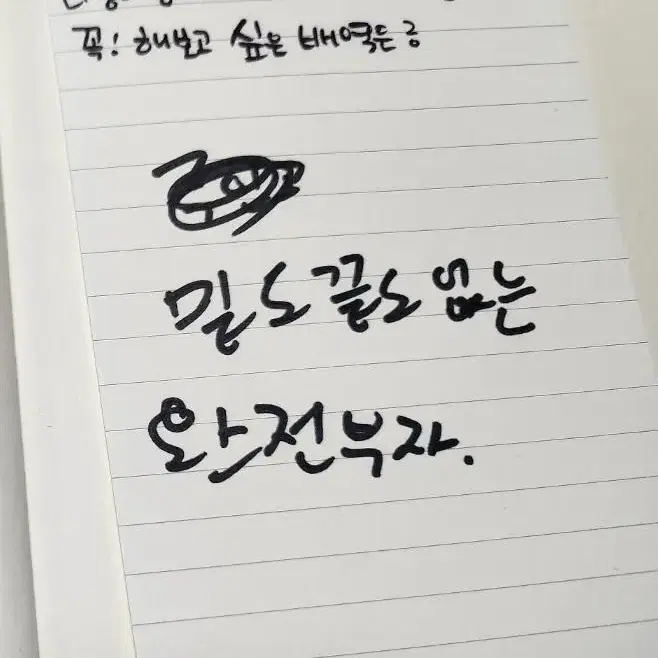 꼭! 해보고 싶은 배역은?
밑도끝도 없는
완전부자.